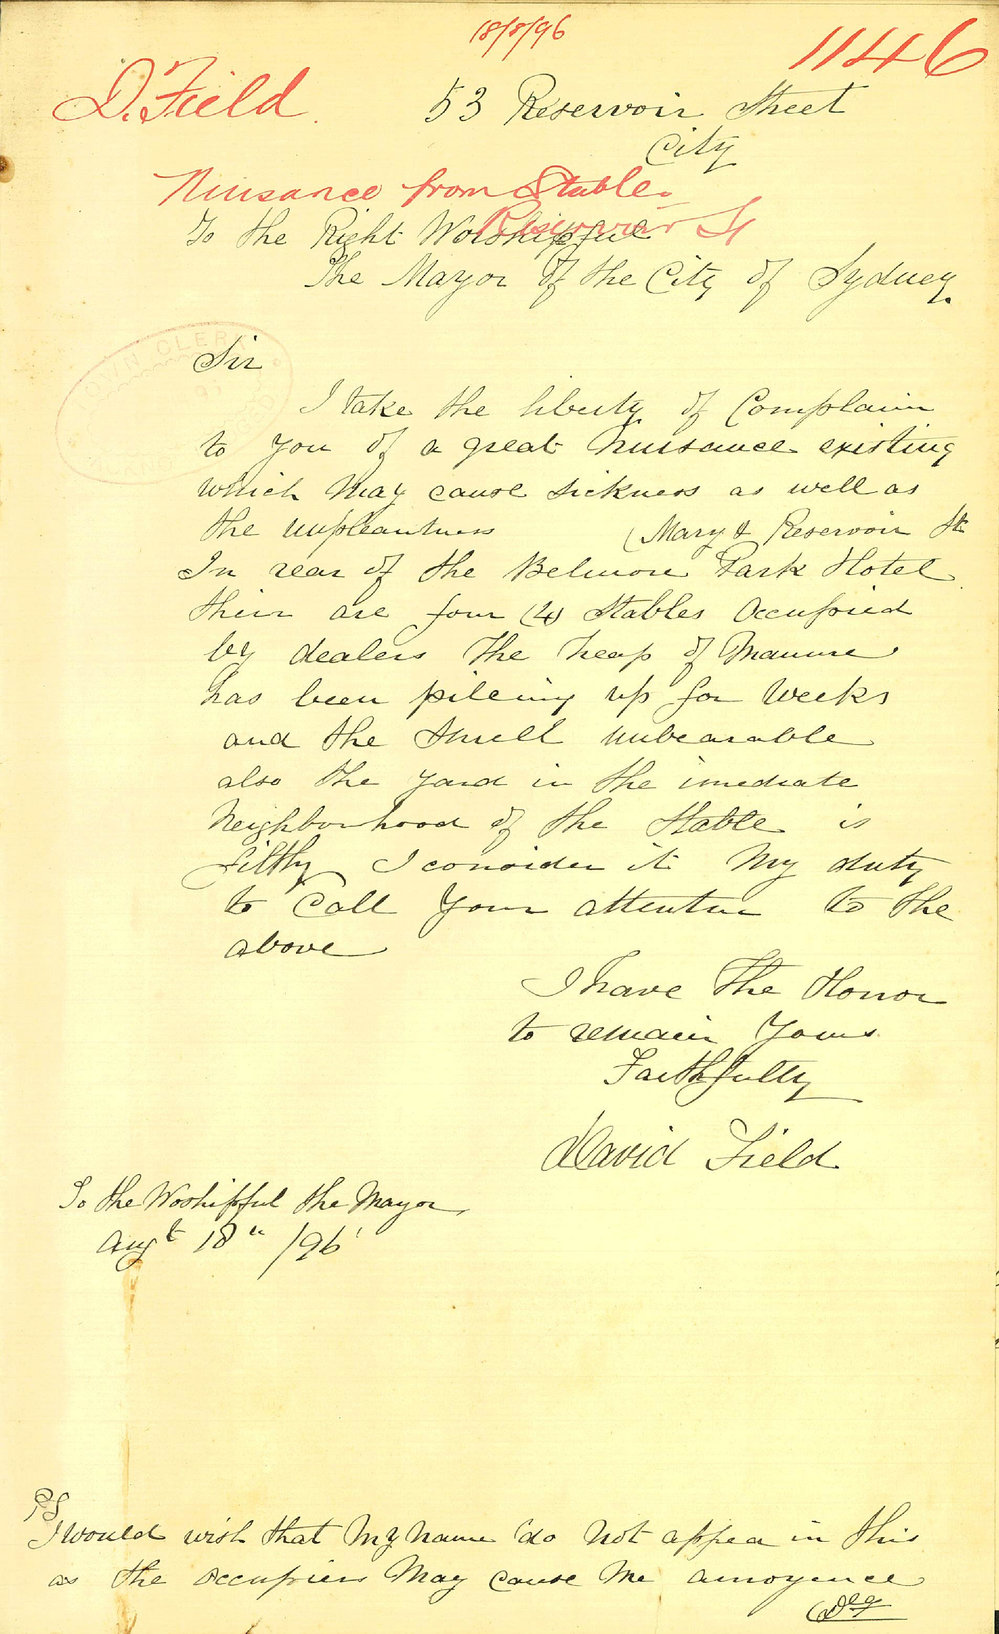 18/8/96
1146
D. Field.
53 Reservoir Street
City
Nuisance from Stable.
Reservoir St
To the Right Worshipful
The Mayor of the City of Sydney.
TOWN CLERK
Sir
I take the liberty of Complain
to you of a great Nuisance existing
which May cause sickness as well as
the unpleantness (Mary & Reservoir St
In rear of the Belmore Park Hotel
their are four (4) Stables Occupied
by dealers The heap of Manure
has been pileing up for Weeks
and the Smell unbearable
also the yard in the imediate
Neighborhood of the Stable is
Filthy I consider it My duty
to Call Your attention to the
above
I have the Honor
to remain Yours
Faithfully
David Field
To the Woshipful the Mayor
Augt 18th /96
PS
I would wish that My Name do Not appea in this
as the occupiers May cause Me annoyence